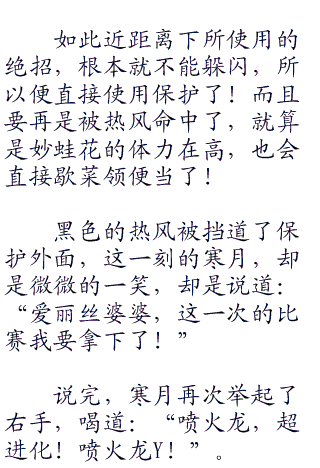 如此近距离下所使用的
绝招，根本就不能躲闪，所
以便直接使用保护了！而且
要再是被热风命中了，就算
是妙蛙花的体力在高，也会
直接歇菜领便当了！
黑色的热风被挡道了保
护外面，这一刻的寒月，却
是微微的一笑，却是说道：
“爱丽丝婆婆，这一次的比
赛我要拿下了！”
说完，寒月再次举起了
右手，喝道：“喷火龙，超
进化！喷火龙Y！”。